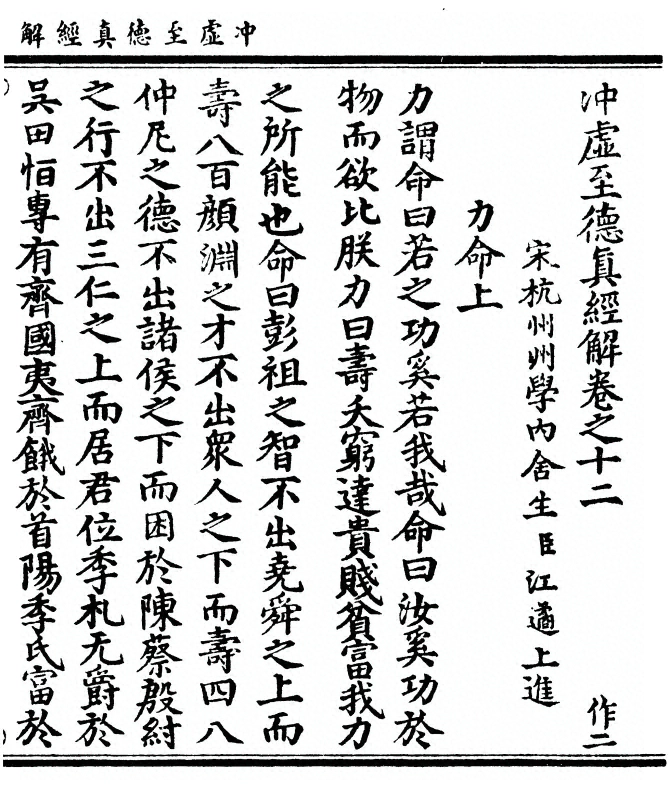 冲虛至德真經解
冲虛至德眞經解卷之十二
作二
宋杭州州學內舍生臣江遹上進
力命上
力謂命曰若之功奚若我哉命曰汝奚功於
物而欲比朕力曰壽夭窮達貴賤貧富我力
之所能也命曰彭祖之智不出堯舜之上而
壽八百顔淵之才不出衆人之下而壽四八
仲尼之德不出諸侯之下而困於陳蔡殷紂
之行不出三仁之上而居君位季札无爵於
吳田恒專有齊國夷齊餓於首陽季氏富於